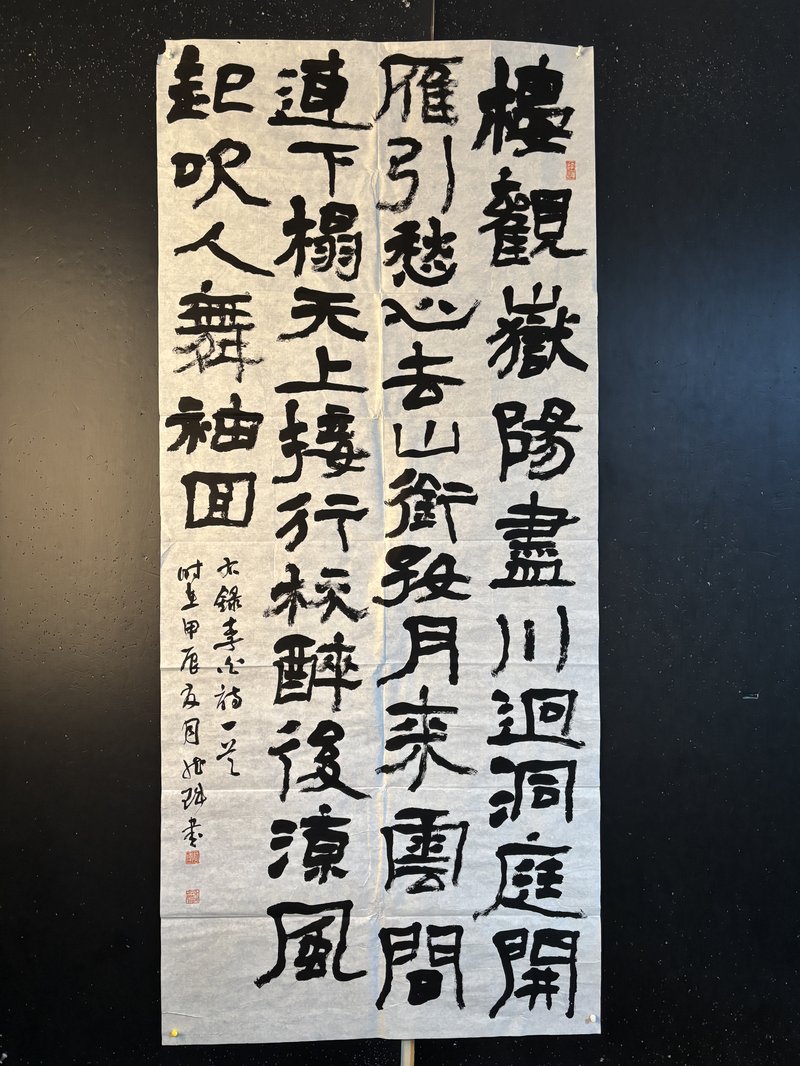 樓觀嶽陽盡川迥洞庭開
雁引愁心去山銜好月來雲間
連下榻天上接行杯醉後涼風
起吹人舞袖回
右錄李白詩一首
時在甲辰夏月書